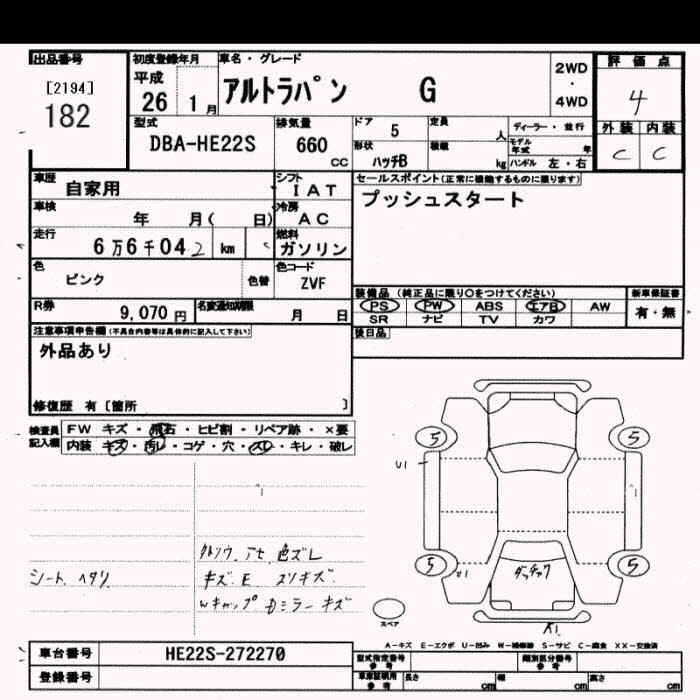 出品番号
[2194]
182
初度登録年月
平成
26 1月
車名・グレード
アルトラパン G
2WD
・
4WD
評価点
4
外装 内装
C C
型式
DBA-HE22S
排気量
660
CC
ドア 5
形状
ハッチB
定員 人
積載 kg
ディーラー・並行
モデル年式 年
ハンドル 左・右
車歴
自家用
シフト
IAT
車検
年 月( 日)
冷房
AC
走行
6万6千042 km
燃料
ガソリン
色
ピンク
色替
色コード
ZVF
R券
9,070円
名変通知期限
月 日
セールスポイント(正常に機能するものに限ります)
プッシュスタート
装備品(純正品に限り○をつけてください)
PS PW ABS エアB AW
SR ナビ TV カワ
新車保証書
有・無
後日品
注意事項申告欄(不具合内容等は具体的に記入して下さい)
外品あり
修復歴 有〔箇所 〕
検査員
記入欄
FW キズ・飛石・ヒビ割・リペア跡・×要
内装 キズ・汚レ・コゲ・穴・スレ・キレ・破レ
シート ヘタリ
色ズレ
キズ E スリキズ
Wキャップ Dミラー キズ
5
5
U1
5
U1
5
A1
スペア
A-キズ E-エクボ U-凹み W-補修跡 S-サビ C-腐食 XX-交換済
車台番号
HE22S-272270
登録番号
型式指定番号
参考
類別区分番号
参考
車庫証明用
参考
長さ cm
幅 cm
高さ cm